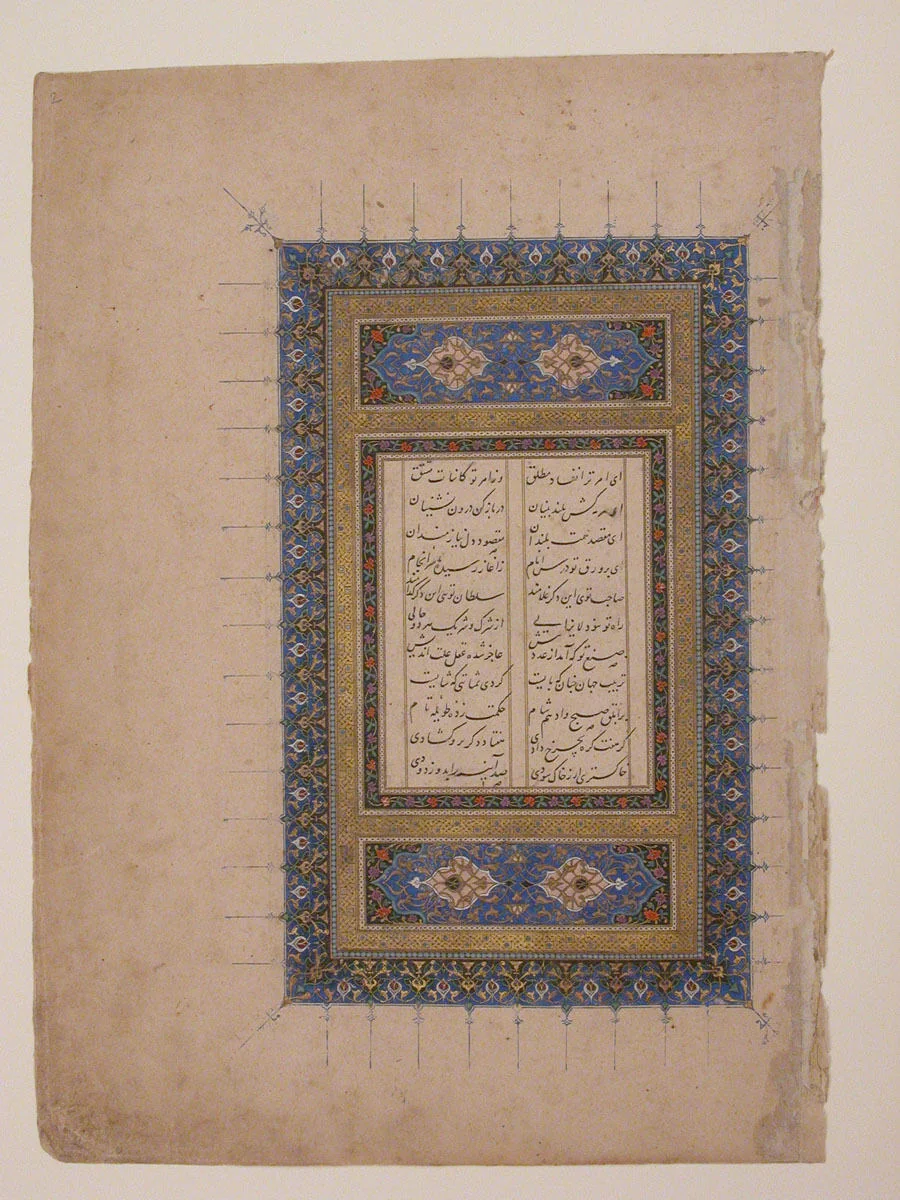 2
ای امر ترا نفاد مطلق وز امر تو کاینات مشتق
ای سرمه کش بلند بینان در باز کن درون نشینان
ای مقصد همت بلندان مقصود دل نیازمندان
ای بر ورق تو درس ایام ز آغاز رسیده تا بانجام
صاحب توی این دکر غلامند سلطان توی این دکر کدامند
راه تو بنور لایزالی از شرک و شریک هر دو خالی
در صنع تو که آمد از عدد بیش عاجز شده عقل علت اندیش
ترتیب جهان چنان که بایست کردی بمثابتی که شایست
بر ابلق صبح و ادهم شام حکمت زده طویله
کر هفت کره بچرخ دادی هفتاد کره برو کشادی
خاکستری ار ز خاک سودی صد آینه را بدو زدودی